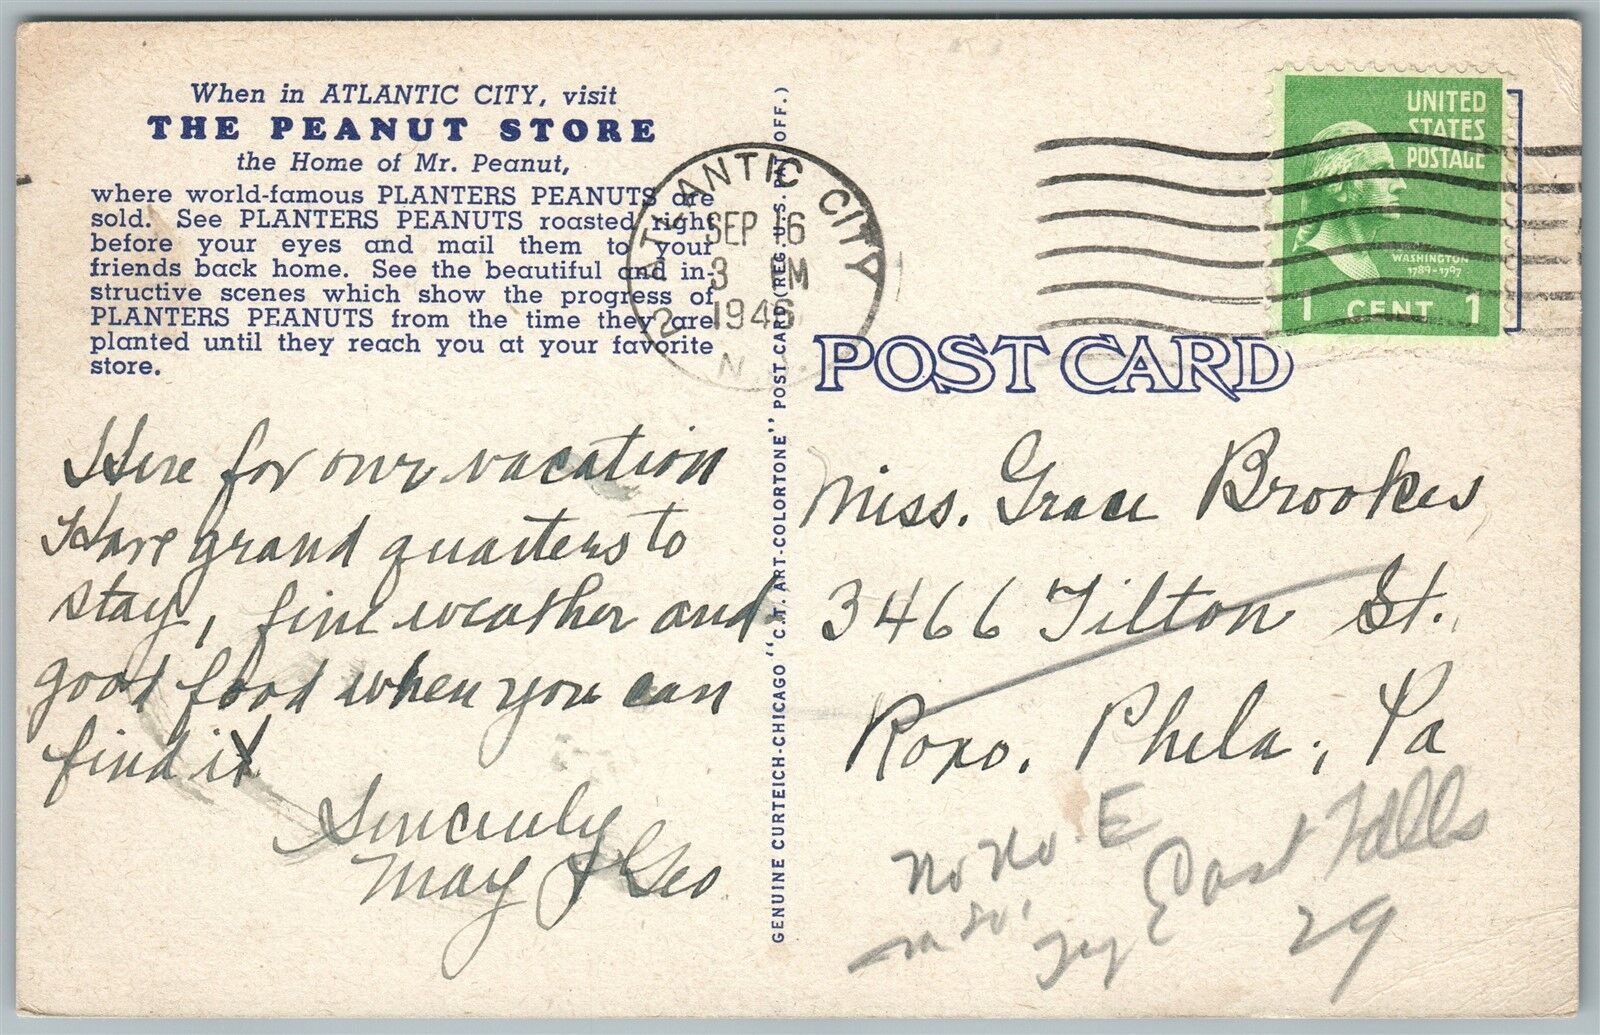 When in ATLANTIC CITY, visit
THE PEANUT STORE
the Home of Mr. Peanut,
where world-famous PLANTERS PEANUTS are
sold. See PLANTERS PEANUTS roasted right
before your eyes and mail them to your
friends back home. See the beautiful and in-
structive scenes which show the progress of
PLANTERS PEANUTS from the time they are
planted until they reach you at your favorite
store.
Here for our vacation
Have grand quarters to
stay, fine weather and
good food when you can
find it
Sincerely
May & Geo
GENUINE CURTEICH-CHICAGO "C.T. ART-COLORTONE" POST CARD (REG. U.S. PAT. OFF.)
ATLANTIC CITY
SEP 16
3 M
1946
2 N.
UNITED
STATES
POSTAGE
WASHINGTON
1789-1797
1 CENT 1
POST CARD
Miss. Grace Brookes
3466 Tilton St.
Roxo. Phila; Pa
No No. E
Try East Falls
29